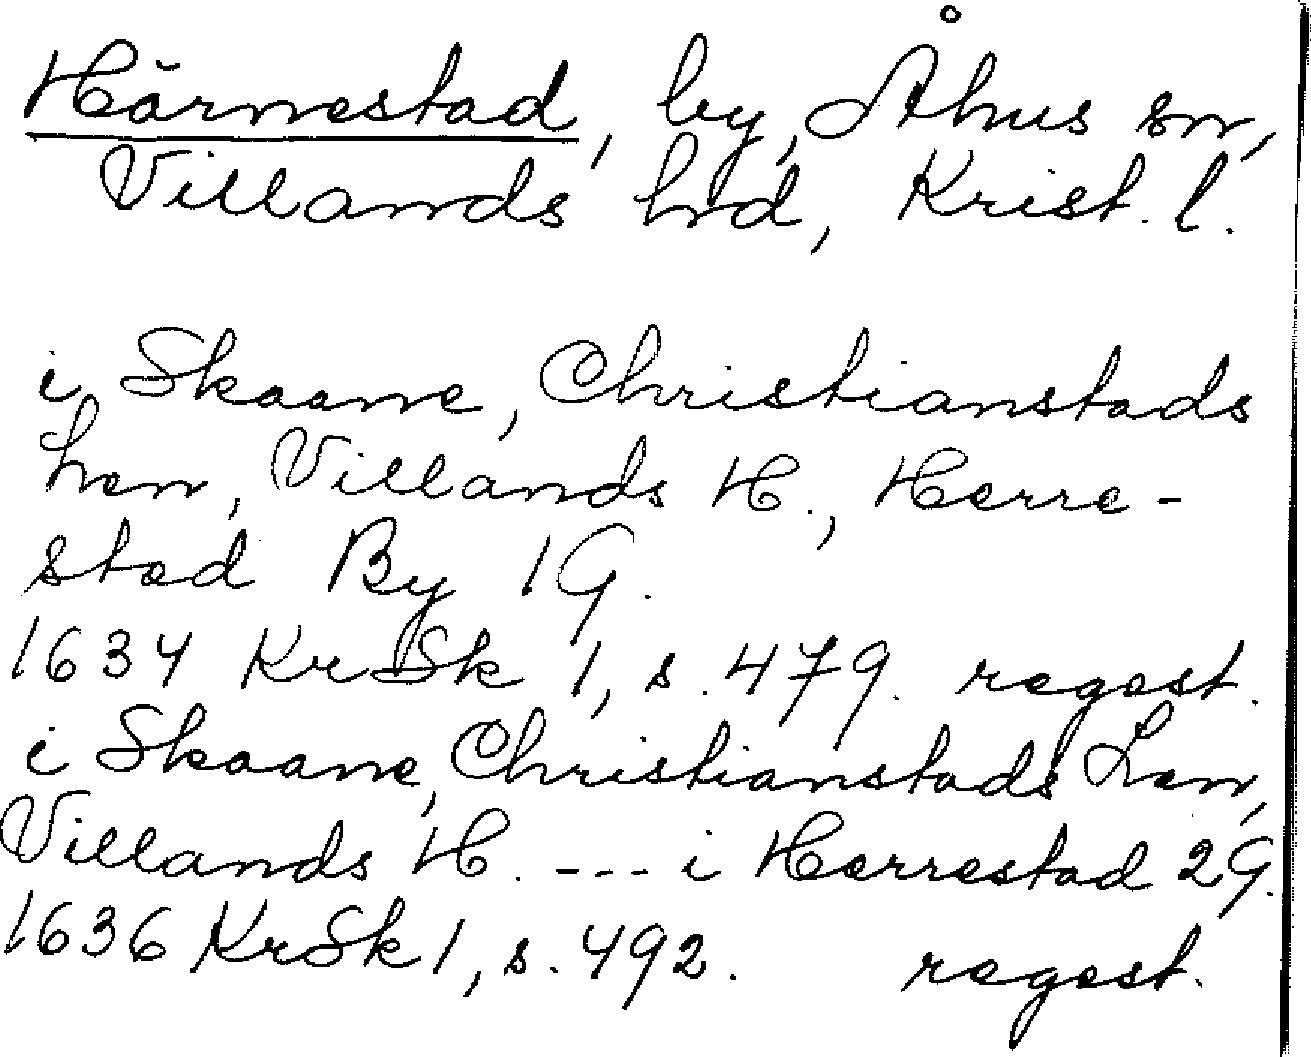 Härnestad, by, Åhus sn,
Villands hd, Krist. l.
i Skaane, Christianstads
Len, Villands H., Herre-
stad By 1 G.
1634 KrSk 1, s. 479. regest.
i Skaane, Christianstads Len,
Villands H. --- i Herrestad 2 G.
1636 KrSk 1, s. 492. regest.